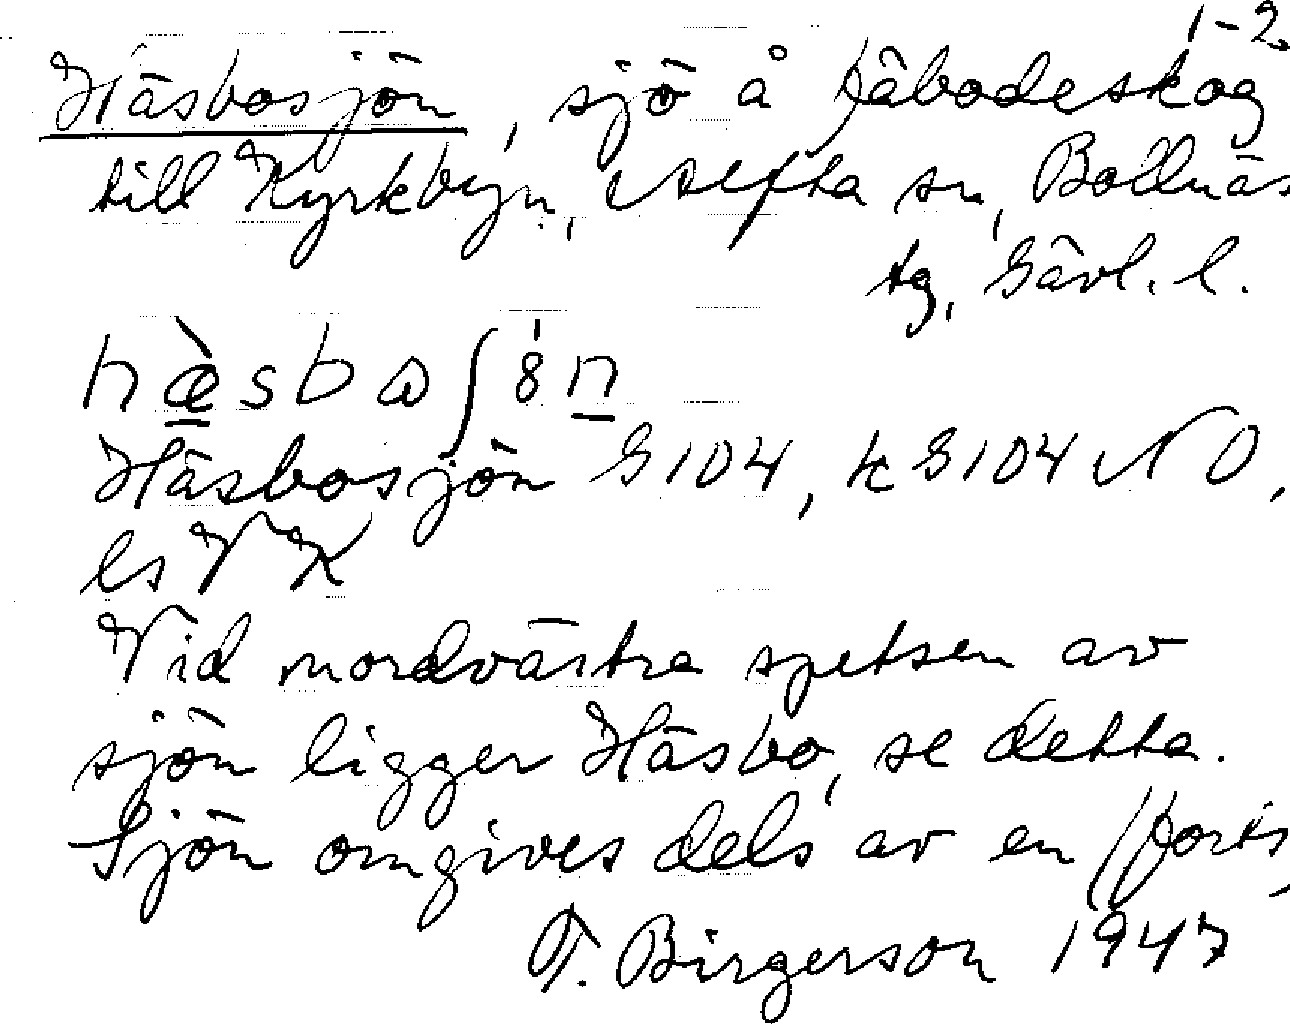 1-2.
Häsbosjön, sjö å fäbodeskog
till Kyrkbyn, Alfta sn, Bollnäs
tg, Gävl. l.
hæ̀sbɷʃ8n
Häsbosjön G104, k G104 NO,
ls VK
Vid nordvästra spetsen av
sjön ligger Häsbo, se detta.
Sjön omgives dels av en (forts,
T. Birgerson 1947